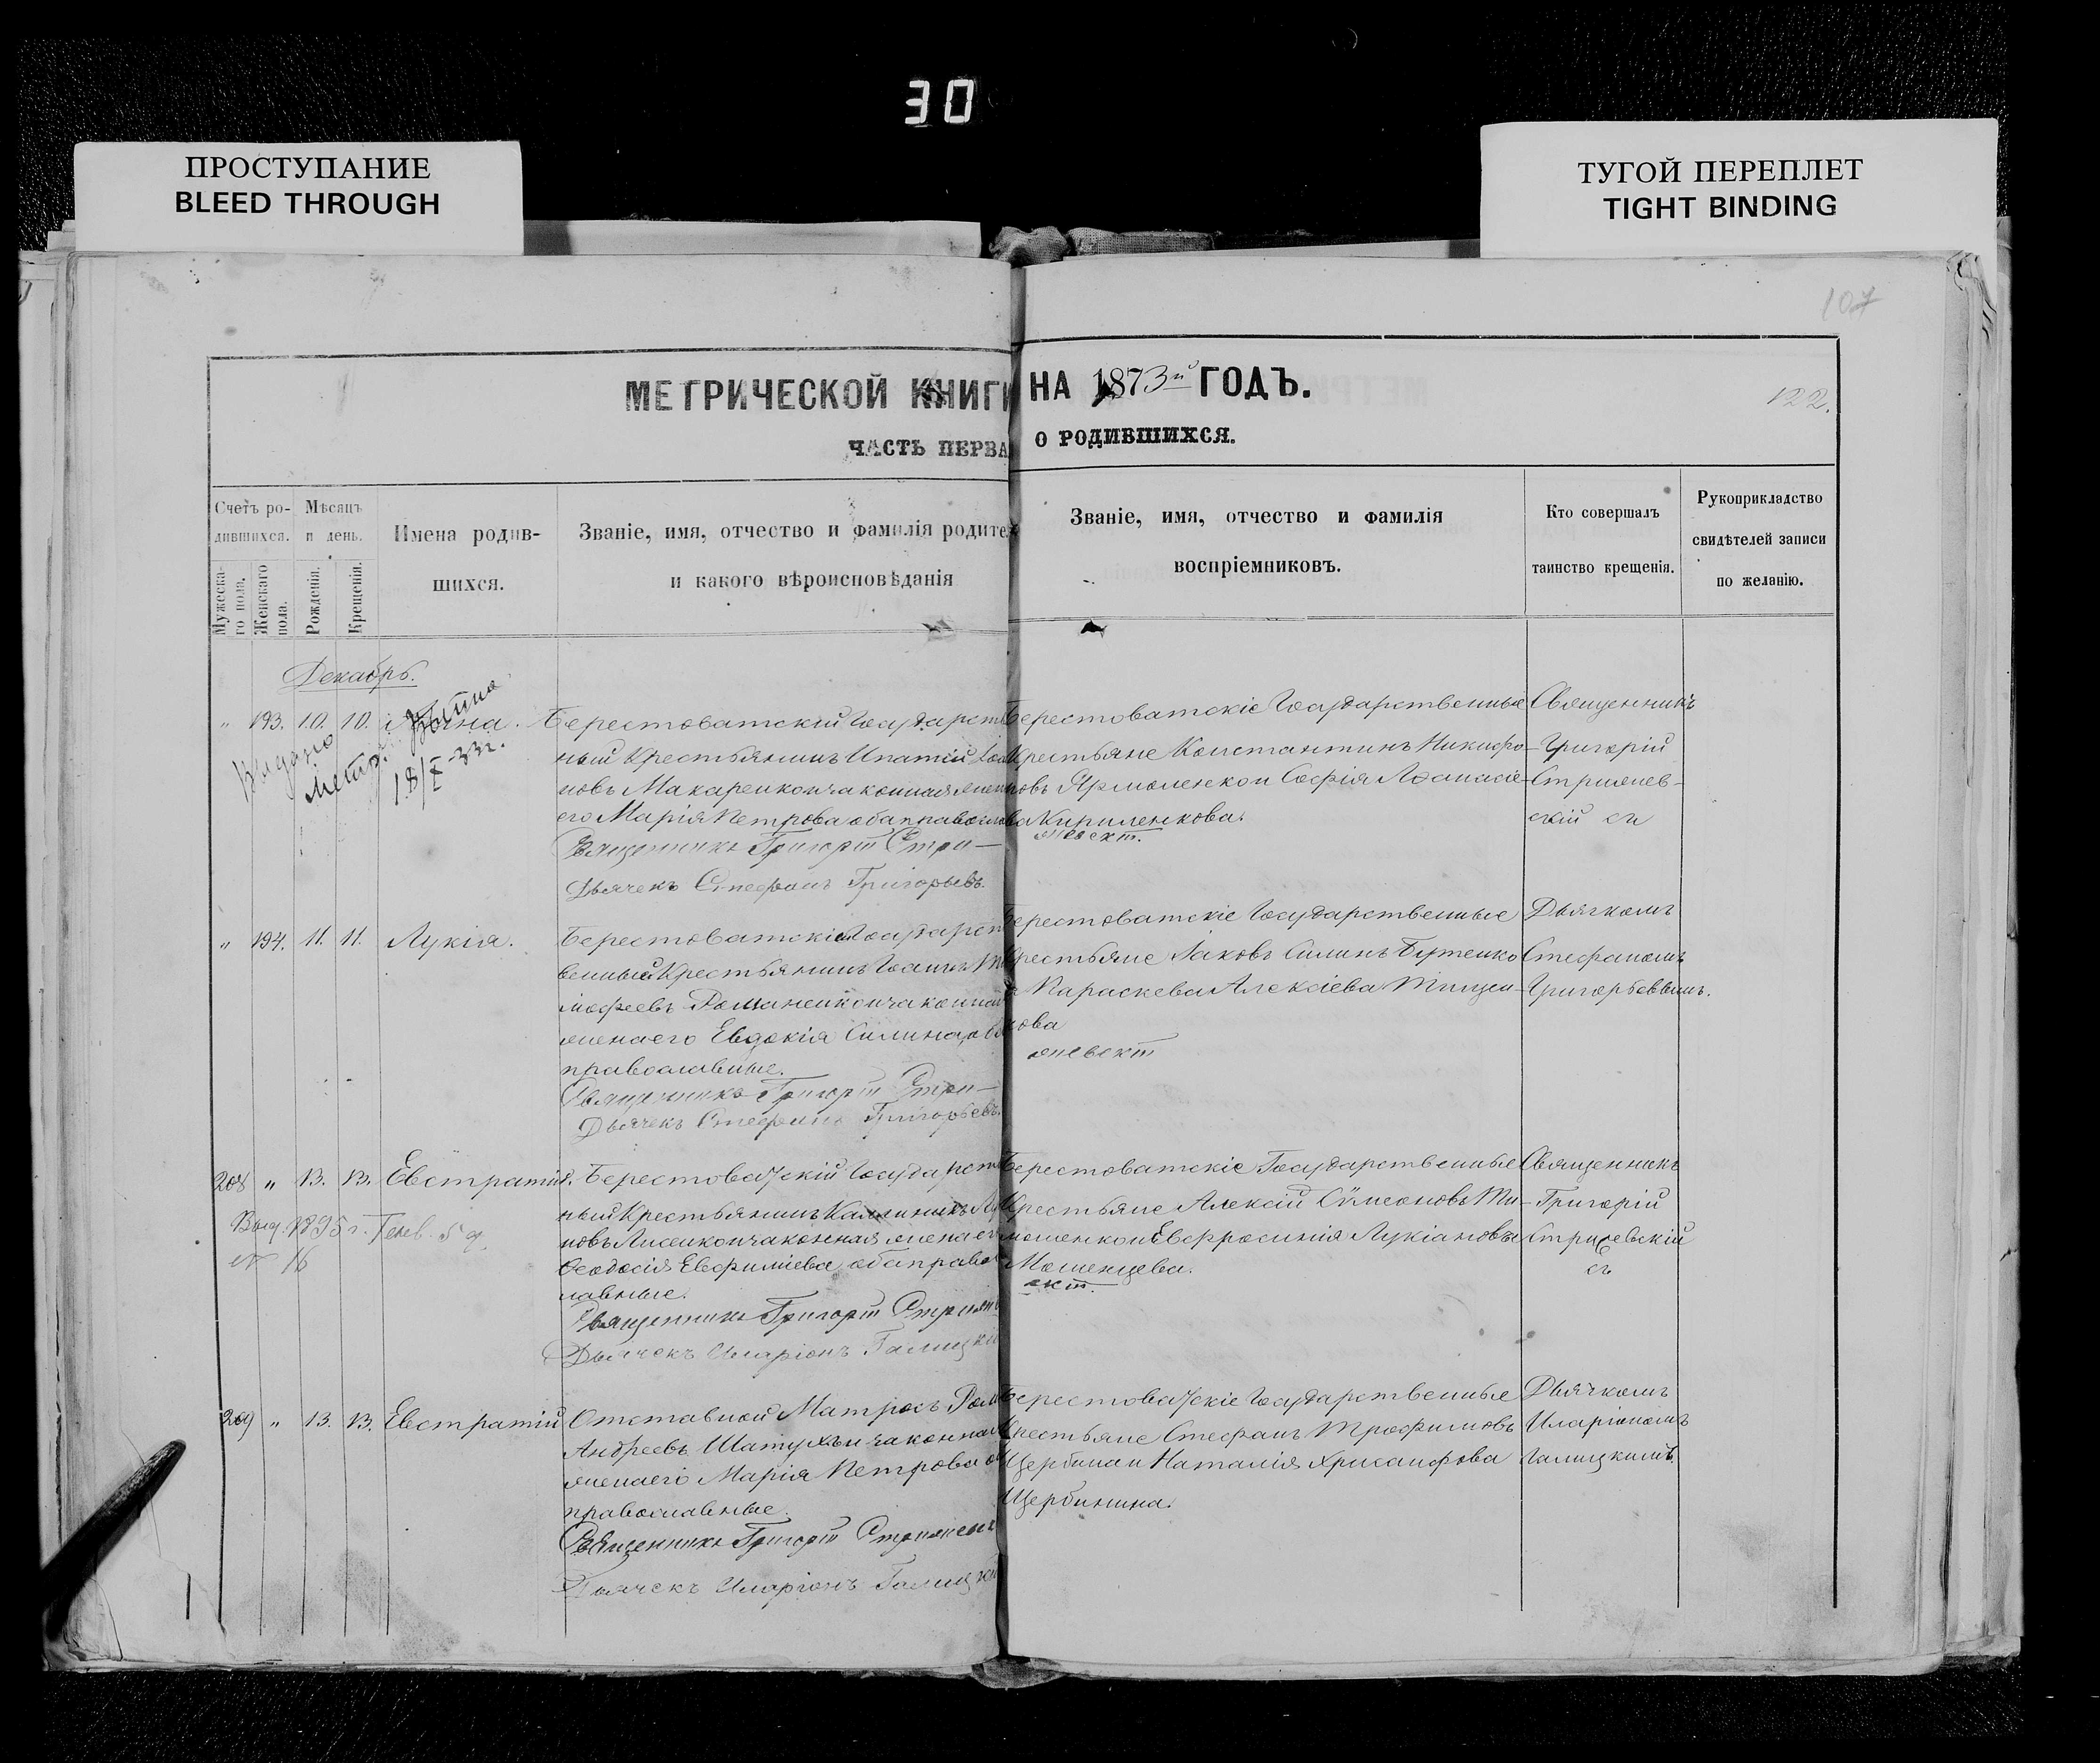 30
ПРОСТУПАНИЕ
BLEED THROUGH
ТУГОЙ ПЕРЕПЛЕТ
TIGHT BINDING
107
МЕТРИЧЕСКОЙ КНИГИ НА 1873й ГОДЪ.
122.
ЧАСТЬ ПЕРВА О РОДИВШИХСЯ.
Счетъ ро-
дившихся.
Мужеска-
го пола.
Женскаго
пола.
Мѣсяцъ
и день.
Рожденія.
Крещенія.
Имена родив-
шихся.
Званіе, имя, отчество и фамилія родите
и какого вѣроисповѣданія
Званіе, имя, отчество и фамилія
воспріемниковъ.
Кто совершалъ
таинство крещенія.
Рукоприкладство
свидѣтелей записи
по желанію.
Декабрь.
" 193. 10. 10. Анна.
Выдано
Метр.
18/X-33г.
Берестоватскій Государст
ный Крестьянинъ Ипатій
новъ Макаренко и законная жен
его Марія Петрова оба православ
Священникъ Григорій Стри-
Дьячекъ Стефанъ Григорьевъ.
Берестоватскіе Государственные
Крестьяне Константинъ Никифо-
ровъ Ярмоленко и Софія Аѳанасіе-
ва Кириленкова.
Священникъ
Григорій
Стрижев-
скій съ
" 194. 11. 11. Лукія.
Берестоватскій Государст
венный Крестьянинъ Іоаннъ Ти
мофеевъ Романенко и законная
жена его Евдокія Силина об
православные.
Священникъ Григорій Стри-
Дьячекъ Стефанъ Григорьевъ.
Берестоватскіе Государственные
Крестьяне Іаковъ Силинъ Бутенко
и Параскева Алексіева Тищен-
кова
Дьячкомъ
Стефаномъ
Григорьевымъ.
208 " 13. 13. Евстратій.
Выд. 1895 г. Генв. 5 д.
№ 16
Берестоватскій Государств
ный Крестьянинъ Каллиникъ
новъ Лисенко и законная жена ег
Ѳеодосія Евфиміева, оба правос
лавные.
Священникъ Григорій Стрижев
Дьячекъ Иларіонъ Галицкій
Берестоватскіе Государственные
Крестьяне Алексій Сѵмеоновъ Ти-
мошенко и Евфросинія Лукіанова
Мошенцева.
Священникъ
Григорій
Стрижевскій
съ
209 " 13. 13. Евстратій
Отставной Матросъ Ром
Андреевъ Шатухъ и законная
жена его Марія Петрова об
православные.
Священникъ Григорій Стрижевск
Дьячекъ Иларіонъ Галицкій
Берестоватскіе Государственные
Крестьяне Стефанъ Трофимовъ
Щербина и Наталія Хрисанфова
Щербинина.
Дьячкомъ
Иларіономъ
Галицкимъ.